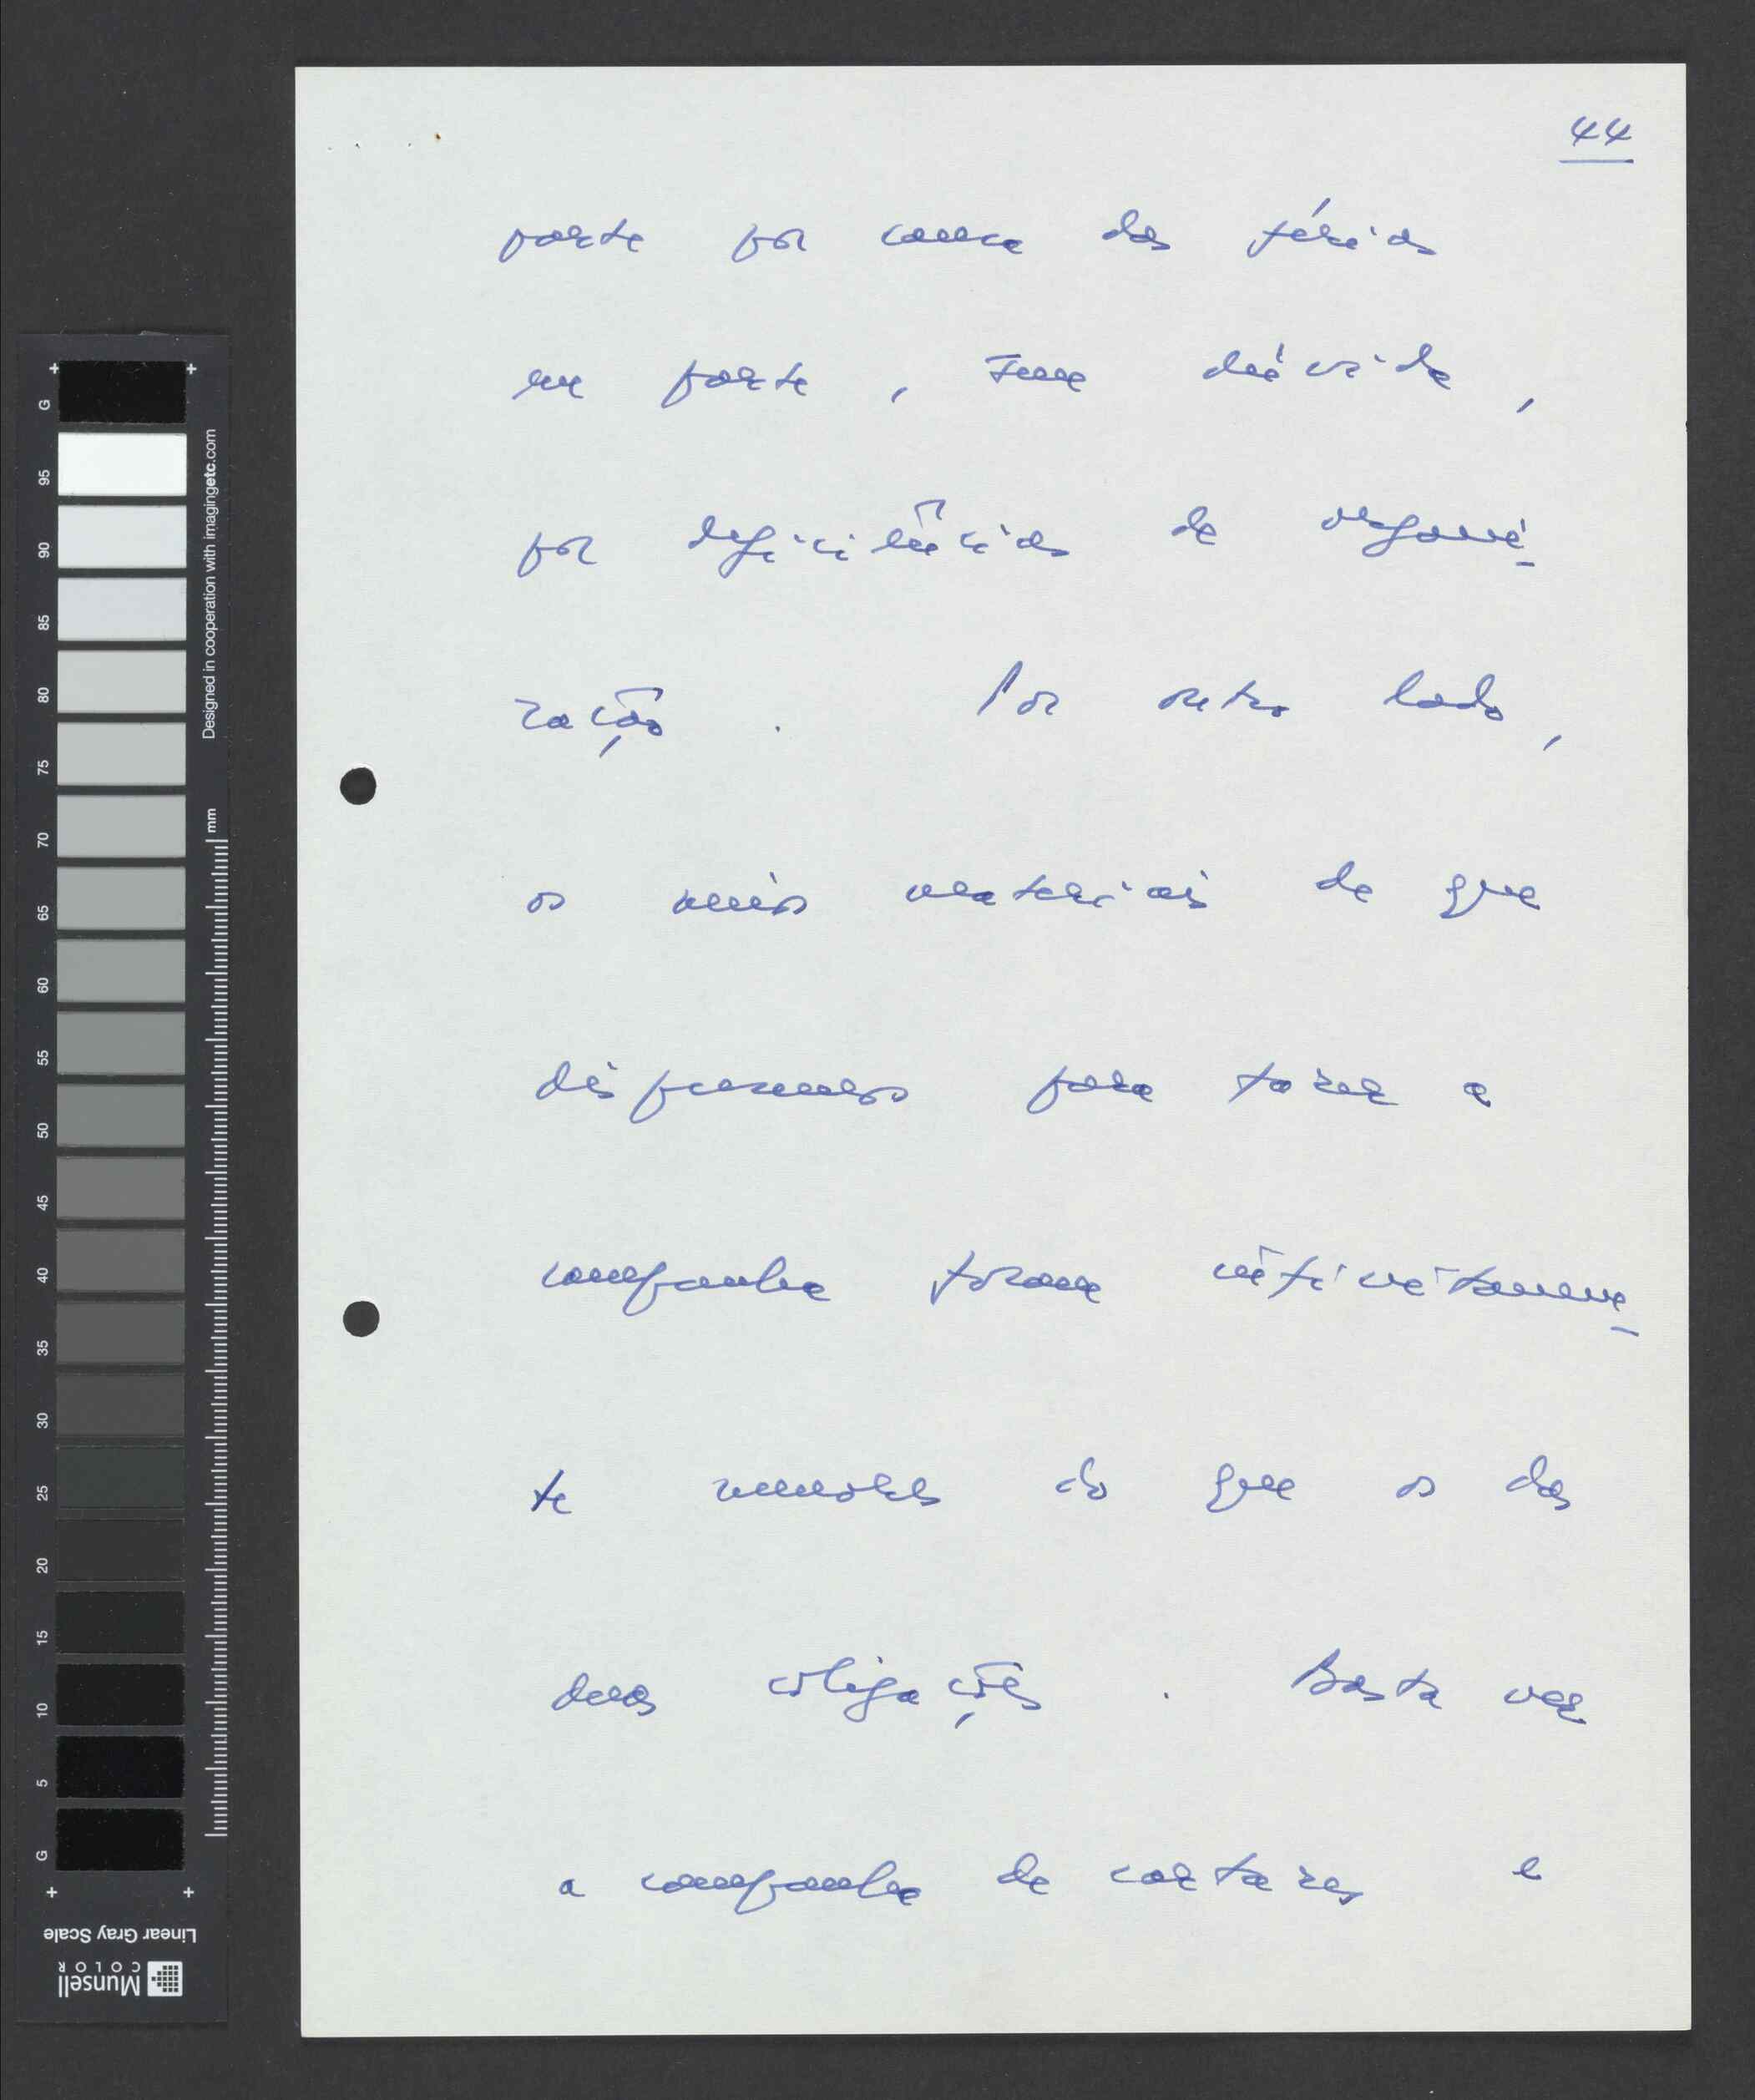 44
parte por causa das férias
em parte, sem dúvida,
por deficiências de organi-
zação. Por outro lado,
os meios materiais de que
dispusemos para fazer a
campanha foram infinitamen-
te menores do que os das
duas coligações. Basta ver
a campanha de cartazes e
G
95
90
85
80
75
70
65
60
55
50
45
40
35
30
25
20
15
10
5
G
Designed in cooperation with imagingetc.com
mm
Linear Gray Scale
Munsell
COLOR